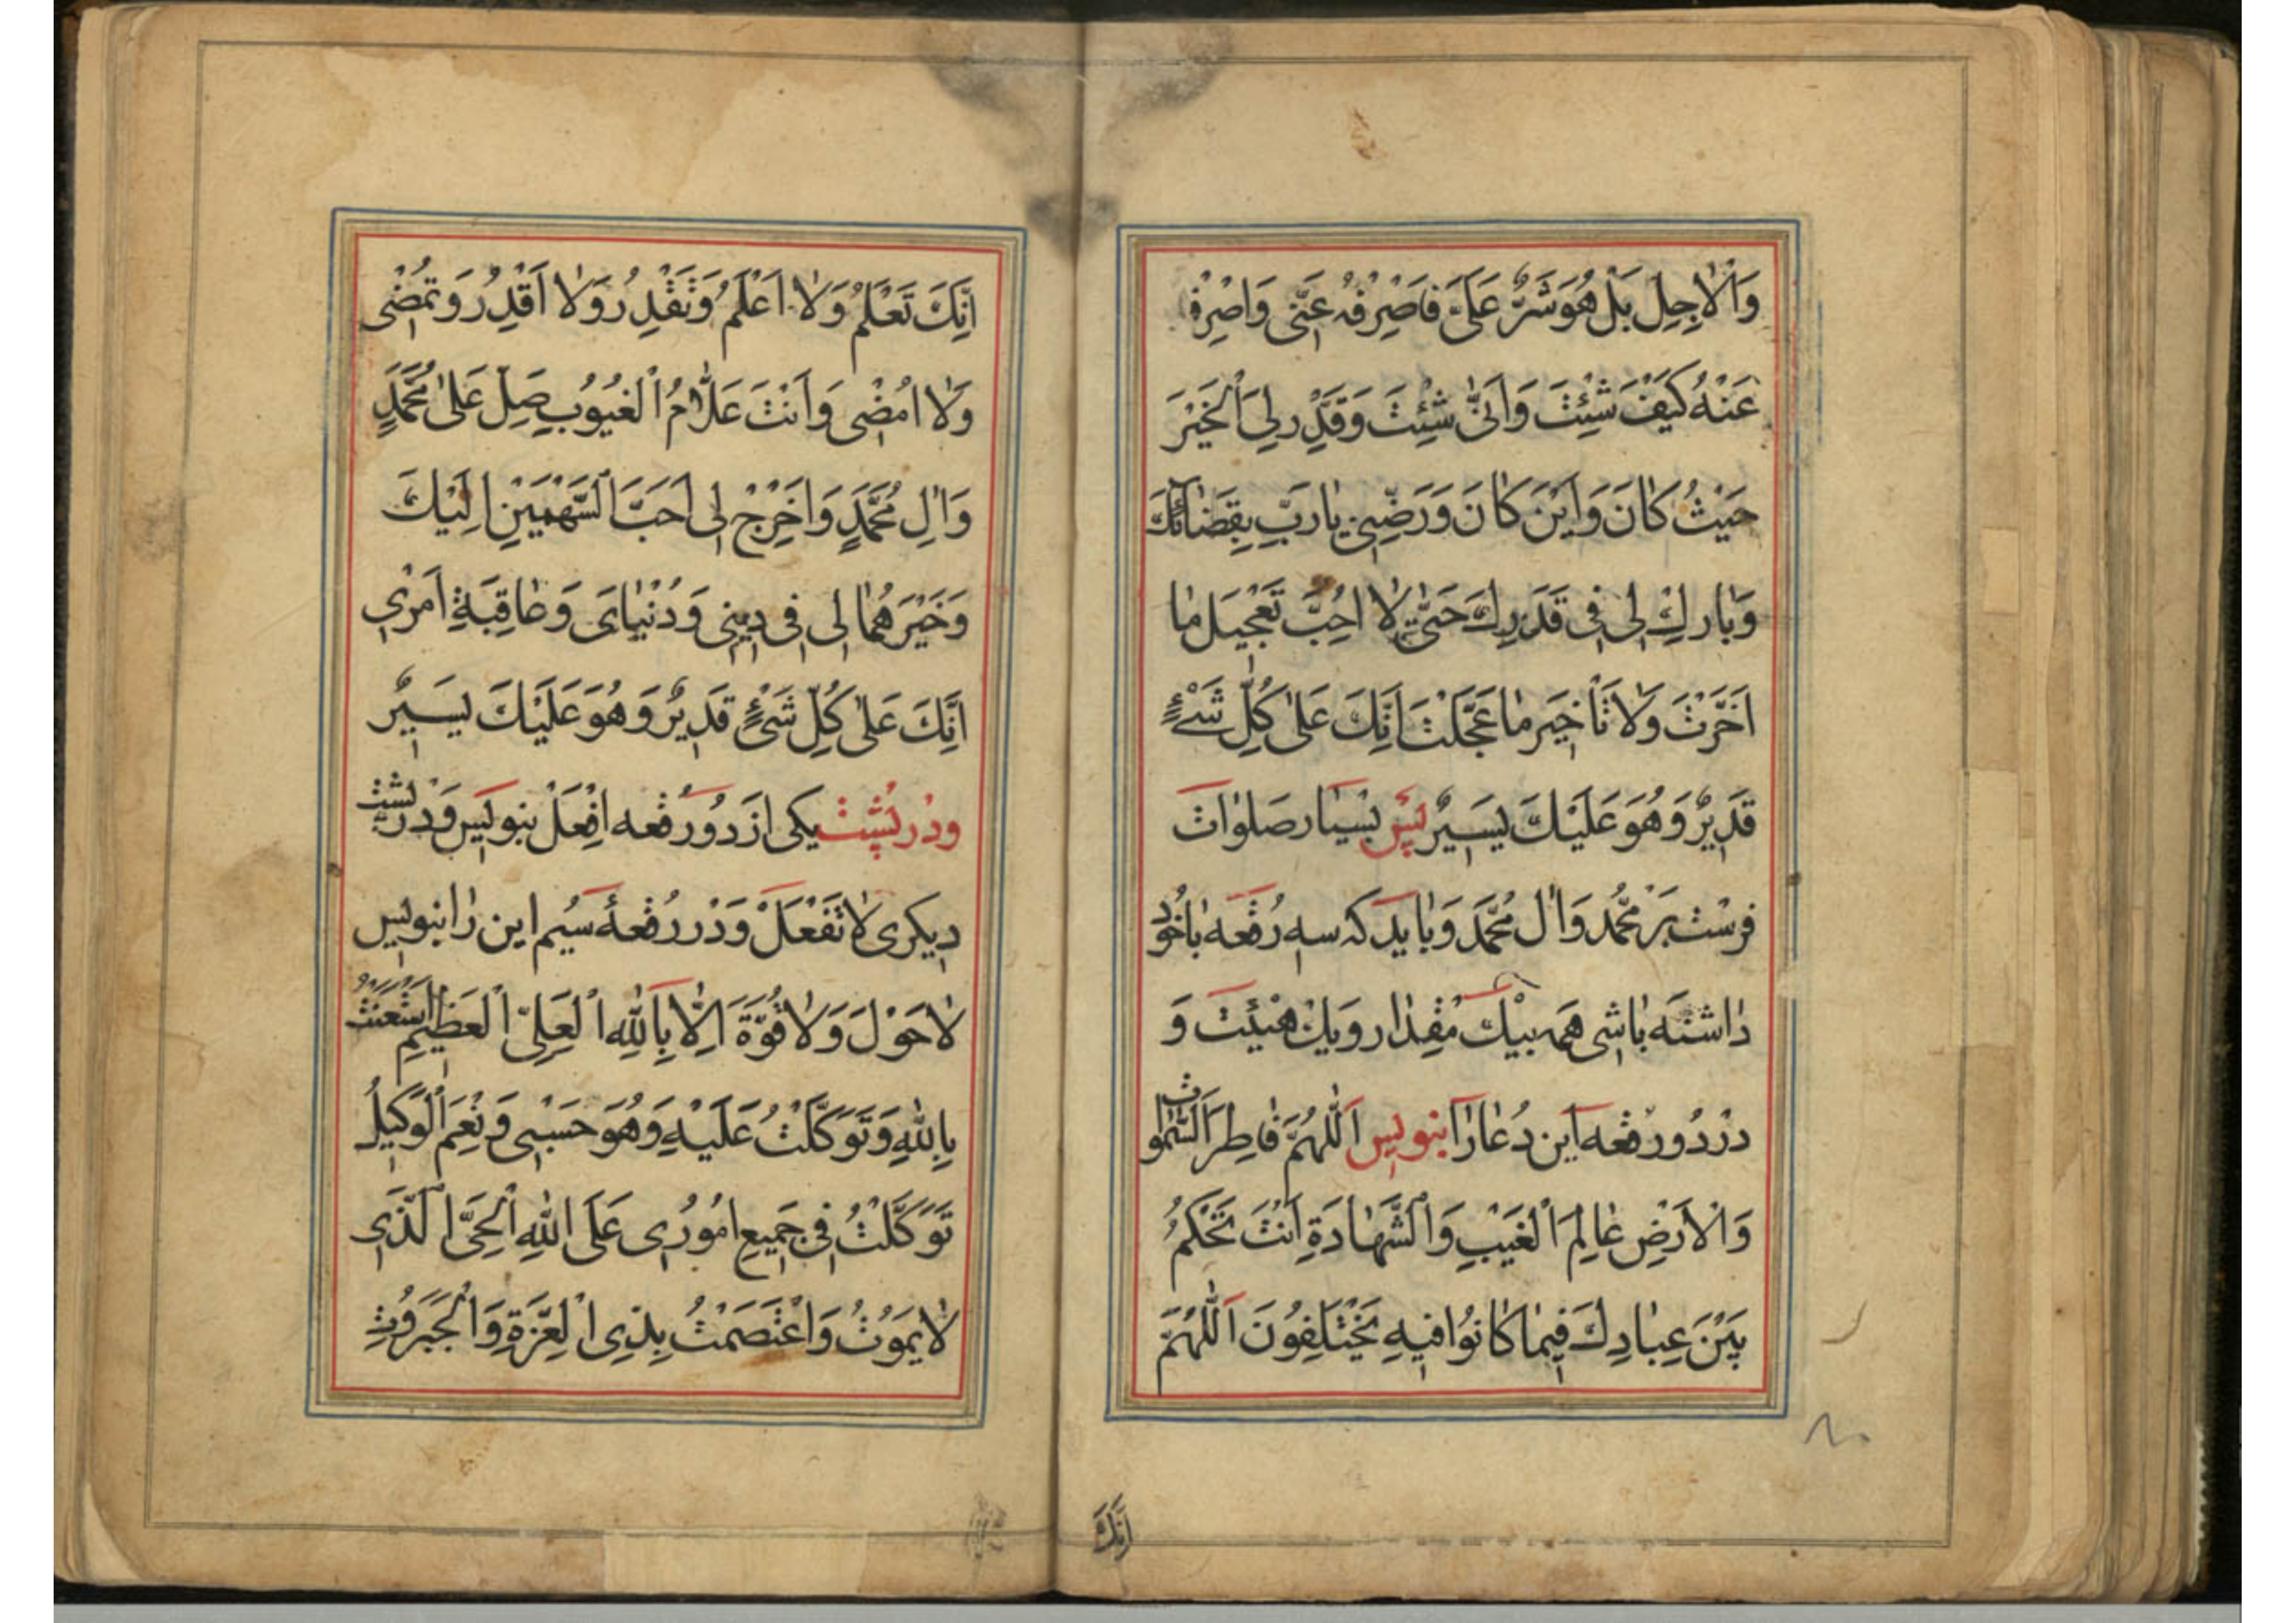 وَالْاٰجِلِ بَلْ هُوَ شَرٌّ عَلَىَّ فَاصْرِفْهُ عَنّٖى وَاصْرِفْنٖى
عَنْهُ كَيْفَ شِئْتَ وَاَنّٰى شِئْتَ وَقَدِّرْ لِىَ الْخَيْرَ
حَيْثُ كٰانَ وَاَيْنَ كٰانَ وَرَضِّنٖى يٰا رَبِّ بِقَضٰائِكَ
وَبٰارِكْ لٖى فٖى قَدَرِكَ حَتّٰى لٰا اُحِبَّ تَعْجٖيلَ مٰا
اَخَّرْتَ وَلٰا تَاْخٖيرَ مٰا عَجَّلْتَ اِنَّكَ عَلٰى كُلِّ شَىْءٍ
قَدٖيرٌ وَهُوَ عَلَيْكَ يَسٖيرٌ پَسْ بسْيٰار صَلوٰات
فرسْت بَرْ مُحَمَّد وَاٰل مُحَمَّد وَبٰايد كه سه رُقعَه بٰاخُود
دٰاشته بٰاشى همه بيْك مقْدٰار ويك هَيْئَت وَ
دَرْ دُو رقعه اين دُعٰا رٰا بنويس اَللّٰهُمَّ فٰاطِرَ السَّمٰوٰاتِ
وَالْاَرْضِ عٰالِمَ الْغَيْبِ وَالشَّهٰادَةِ اَنْتَ تَحْكُمُ
بَيْنَ عِبٰادِكَ فٖيمٰا كٰانُوا فٖيهِ يَخْتَلِفُونَ اَللّٰهُمَّ
اِنَّكَ
اِنَّكَ تَعْلَمُ وَلٰا اَعْلَمُ وَتَقْدِرُ وَلٰا اَقْدِرُ وَتَمْضٖى
وَلٰا اَمْضٖى وَاَنْتَ عَلّٰامُ الْغُيُوبِ صَلِّ عَلٰى مُحَمَّدٍ
وَاٰلِ مُحَمَّدٍ وَاَخْرِجْ لٖى اَحَبَّ السَّهْمَيْنِ اِلَيْكَ
وَخَيْرَهُمٰا لٖى فٖى دٖينٖى وَدُنْيٰاىَ وَعٰاقِبَةِ اَمْرٖى
اِنَّكَ عَلٰى كُلِّ شَىْءٍ قَدٖيرٌ وَهُوَ عَلَيْكَ يَسٖيرٌ
ودر پُشت يكى از دو رقعه اِفْعَلْ بنويس وَدر پشت
ديكرى لٰا تَفْعَلْ وَدَر رُقعهٔ سيُم اين رٰا بنويس
لٰا حَوْلَ وَلٰا قُوَّةَ اِلّٰا بِاللّٰهِ الْعَلِىِّ الْعَظٖيمِ اسْتَعَنْتُ
بِاللّٰهِ وَتَوَكَّلْتُ عَلَيْهِ وَهُوَ حَسْبٖى وَنِعْمَ الْوَكٖيلُ
تَوَكَّلْتُ فٖى جَمٖيعِ اُمُورٖى عَلَى اللّٰهِ الْحَىِّ الَّذٖى
لٰا يَمُوتُ وَاعْتَصَمْتُ بِذِى الْعِزَّةِ وَالْجَبَرُوتِ